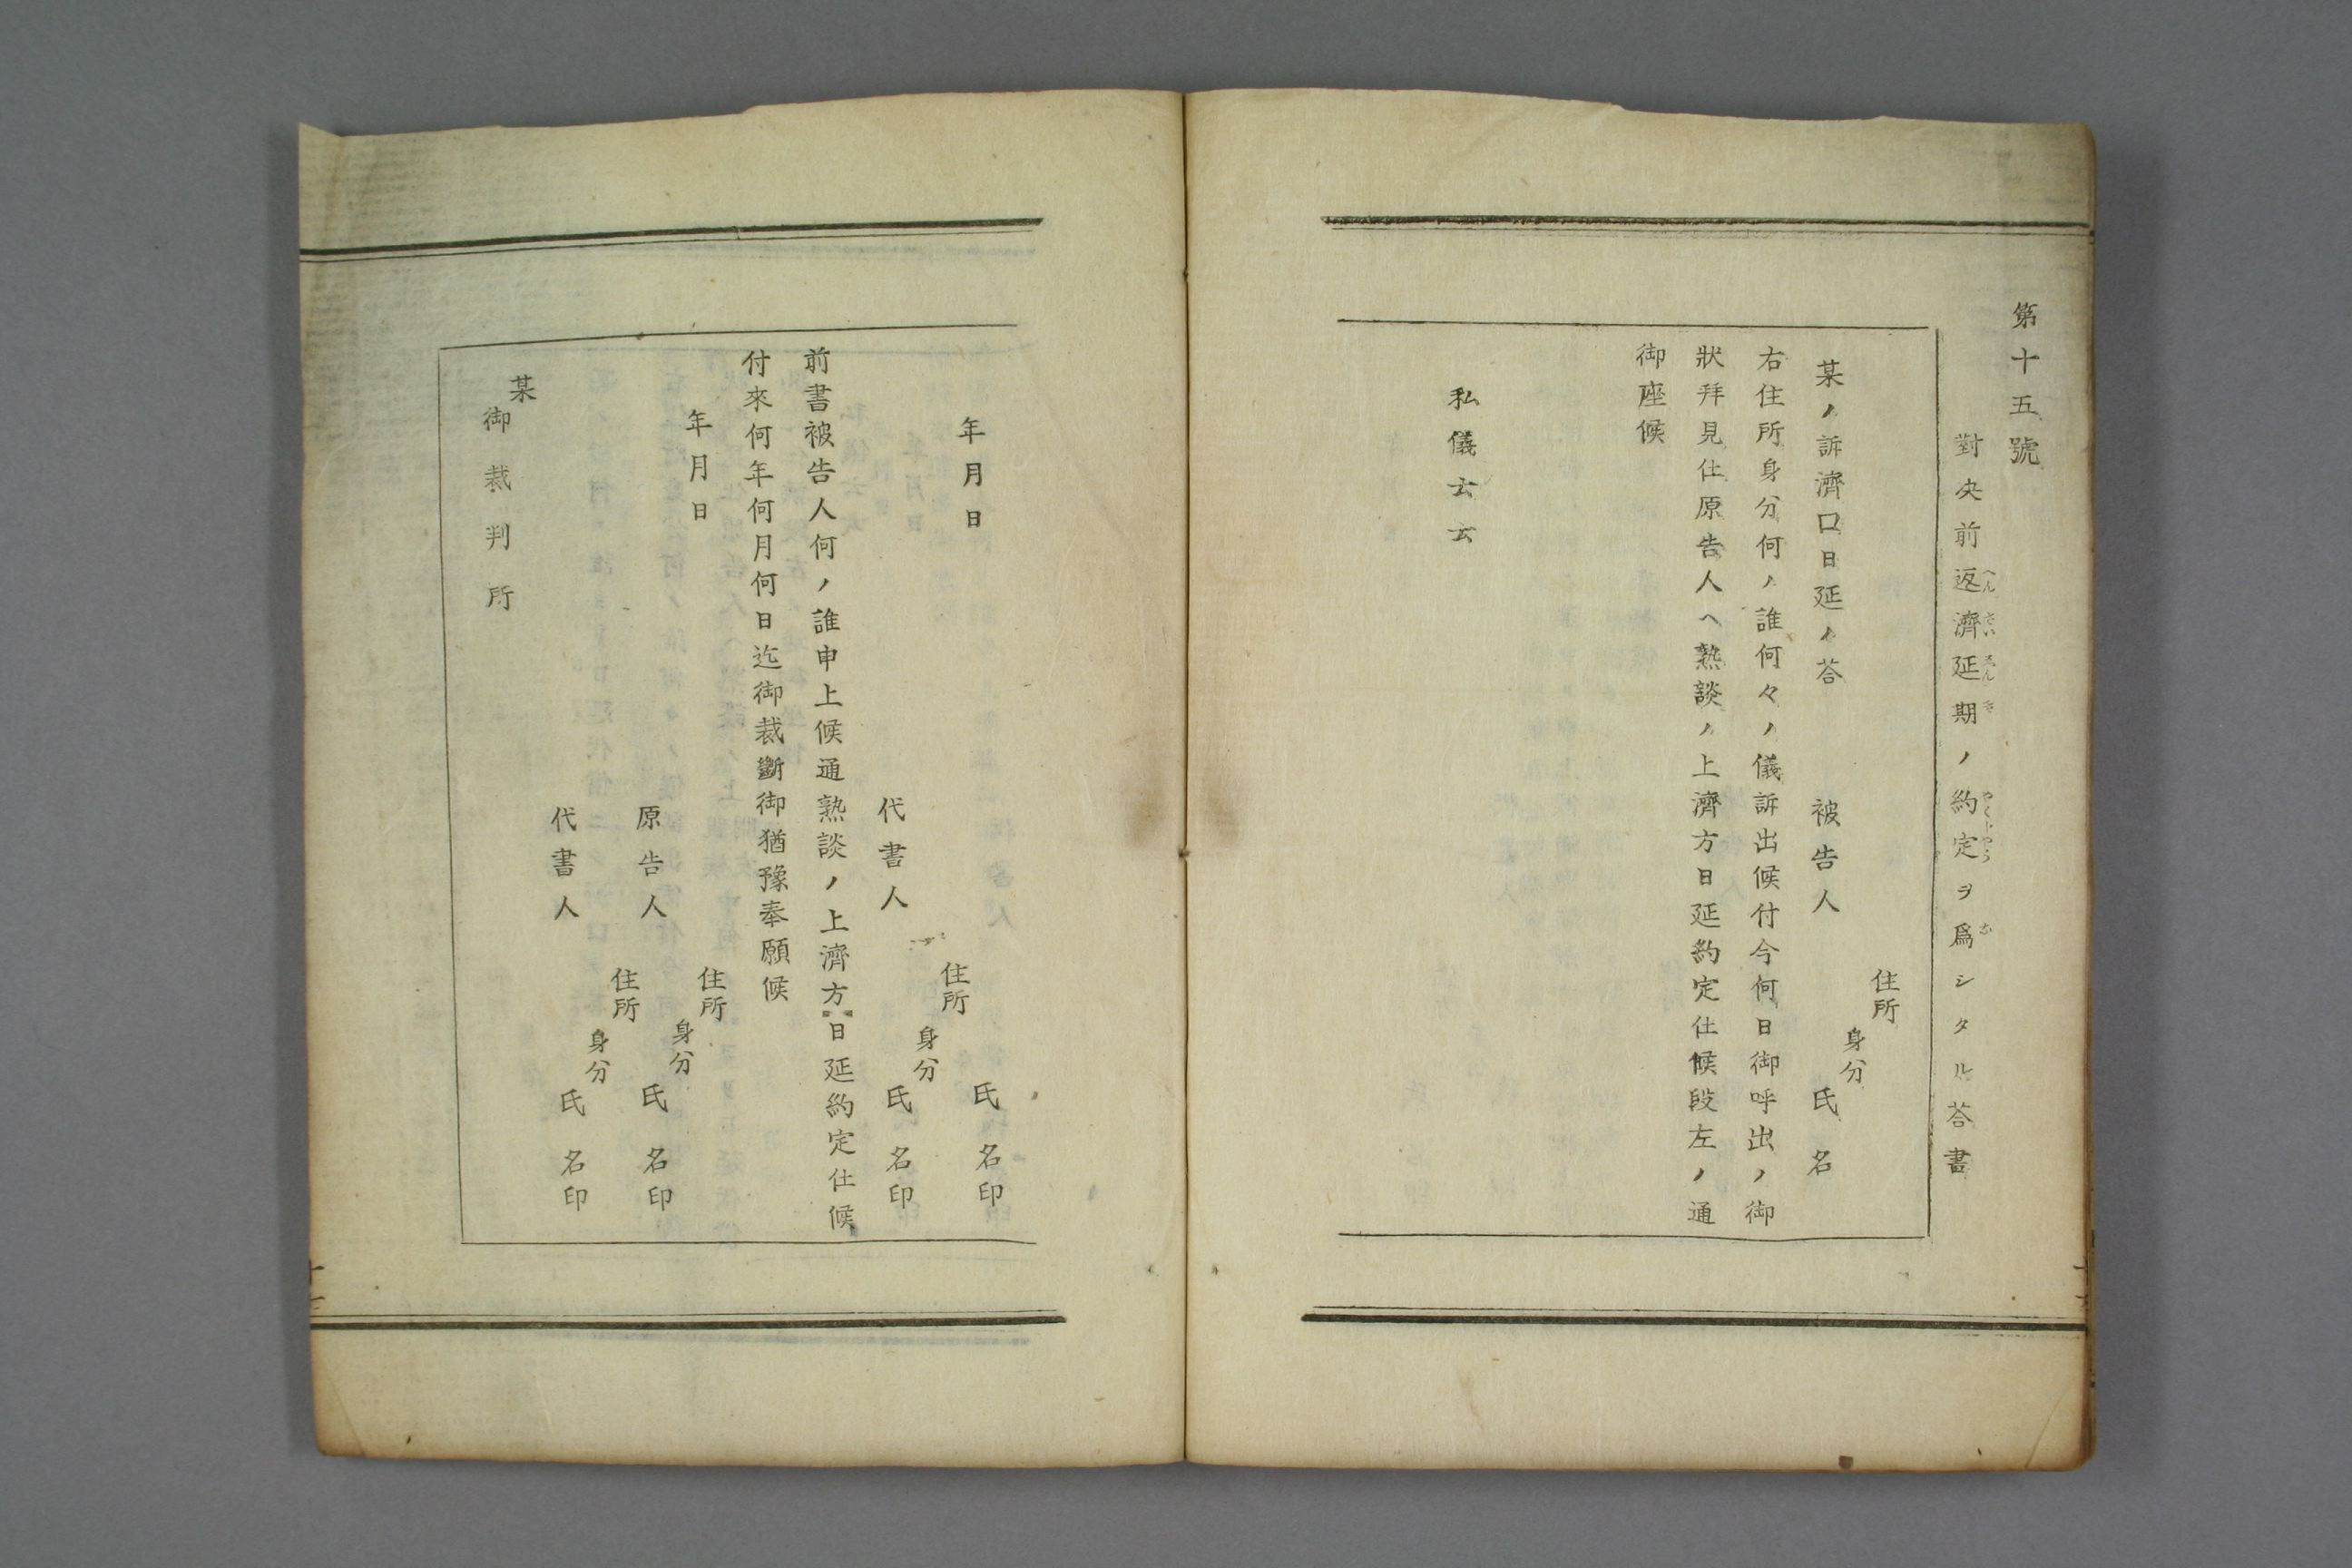 第十五號
對決前返濟延期ノ約定ヲ爲シタル荅書
へんさいゑんきやくじやうな
住所
身分
某ノ訴濟口日延ノ荅 被告人 氏名
右住所身分何ノ誰何々ノ儀訴出候付今何日御呼出ノ御
狀拜見仕原告人ヘ熟談ノ上濟方日延約定仕候段左ノ通
御座候
私儀云云
年月日 氏名印
住所
身分
代書人 氏名印
前書被告人何ノ誰申上候通熟談ノ上濟方日延約定仕候
付來何年何月何日迄御裁斷御猶豫奉願候
年月日 住所
身分
原告人 氏名印
住所
身分
代書人 氏名印
某
御裁判所